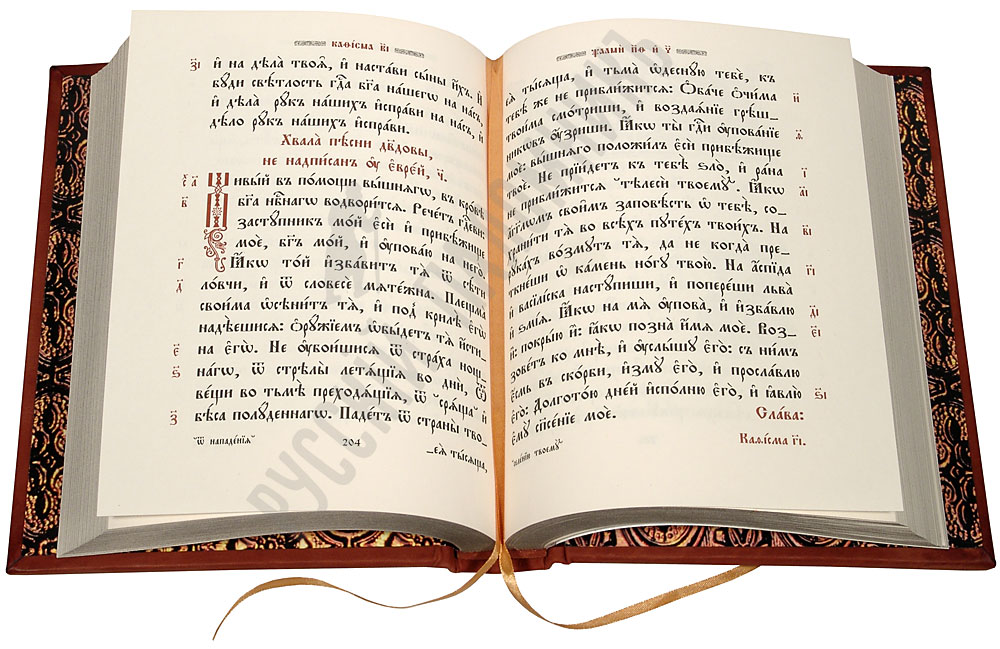 каѳісма в҃і
з҃і и҆ на дѣла̀ твоѧ̑, и҆ наста́ви сы́ны и҆́хъ. И҆
бꙋ́ди свѣ́тлость гдⷭ҇а бг҃а на́шегѡ на на́съ,
и҆ дѣла̀ рꙋ́къ на́шихъ и҆спра́ви на на́съ, и҆
дѣ́ло рꙋ́къ на́шихъ и҆спра́ви.
Хвала̀ пѣ́сни дв҃довы,
не надпи́санъ ᲂу҆ є҆вре́й, ч҃.
а҃ Живы́й въ по́мощи вы́шнѧгѡ, въ кро́вѣ
в҃ бг҃а нбⷭ҇нагѡ водвори́тсѧ. Рече́тъ гдⷭ҇ви:
застꙋ́пникъ мо́й є҆сѝ и҆ прибѣ́жище
моѐ, бг҃ъ мо́й, и҆ ᲂу҆пова́ю на него̀.
г҃ Ꙗ҆́кѡ то́й и҆зба́витъ тѧ̀ ѿ сѣ́ти
д҃ ло́вчи, и҆ ѿ словесѐ мѧте́жна. Плещма̀
свои́ма ѡ҆сѣни́тъ тѧ̀, и҆ под̾ крилѣ̑ є҆гѡ̀
надѣ́ешисѧ: ѻ҆рꙋ́жїемъ ѡ҆бы́детъ тѧ̀ и҆́сти_
є҃ на є҆гѡ̀. Не ᲂу҆бои́шисѧ ѿ стра́ха нощ_
ѕ҃ на́гѡ, ѿ стрѣлы̀ летѧ́щїѧ во днѝ, Ѿ
ве́щи во тьмѣ̀ преходѧ́щїѧ, ѿ "срѧ́ща" и҆
з҃ бѣ́са полꙋ́деннагѡ. Паде́тъ ѿ страны̀ тво_
"ѿ нападе́нїѧ" 204
_еѧ̀ ты́сѧща,
ѱалмы̀ п҃ѳ и҆ ч҃
еѧ̀ ты́сѧща, и҆ тьма̀ ѡ҆деснꙋ́ю тебє̀, къ
тебѣ́ же не прибли́житсѧ: Ѻ҆ба́че ѻ҆чи́ма и҃
твои́ма смо́триши, и҆ воздаѧ́нїе грѣ́ш_
никѡвъ ᲂу҆́зриши. Ꙗ҆́кѡ ты̀ гдⷭ҇и ᲂу҆пова́нїе ѳ҃
моѐ: вы́шнѧго положи́лъ є҆сѝ прибѣ́жище
твоѐ. Не прїи́детъ къ тебѣ̀ ѕло̀, и҆ ра́на і҃
не прибли́житсѧ "тѣлесѝ твоемꙋ̀". Ꙗ҆́кѡ а҃і
а҆́гг҃лѡмъ свои̑мъ заповѣ́сть ѡ҆ тебѣ̀, со_
храни́ти тѧ̀ во всѣ́хъ пꙋте́хъ твои́хъ. На в҃і
рꙋка́хъ во́змꙋтъ тѧ̀, да не когда̀ пре_
ткне́ши ѡ҆ ка́мень но́гꙋ твою̀. На а҆́спїда г҃і
и҆ васїлі́ска настꙋ́пиши, и҆ попере́ши льва̀
и҆ ѕмі́ѧ. Ꙗ҆́кѡ на мѧ̀ ᲂу҆пова̀, и҆ и҆зба́влю д҃і
и҆̀: покры́ю и҆̀: ꙗ҆́кѡ позна̀ и҆́мѧ моѐ. Воз_ є҃і
зове́тъ ко мнѣ̀, и҆ ᲂу҆слы́шꙋ є҆го̀: съ ни́мъ
є҆́смь въ ско́рби, и҆змꙋ̀ є҆го̀, и҆ просла́влю
є҆го̀: Долгото́ю дні́й и҆спо́лню є҆го̀, и҆ ꙗ҆влю̀ ѕ҃і
є҆мꙋ̀ спⷭ҇е́нїе моѐ. Сла́ва:
Каѳі́сма г҃і.